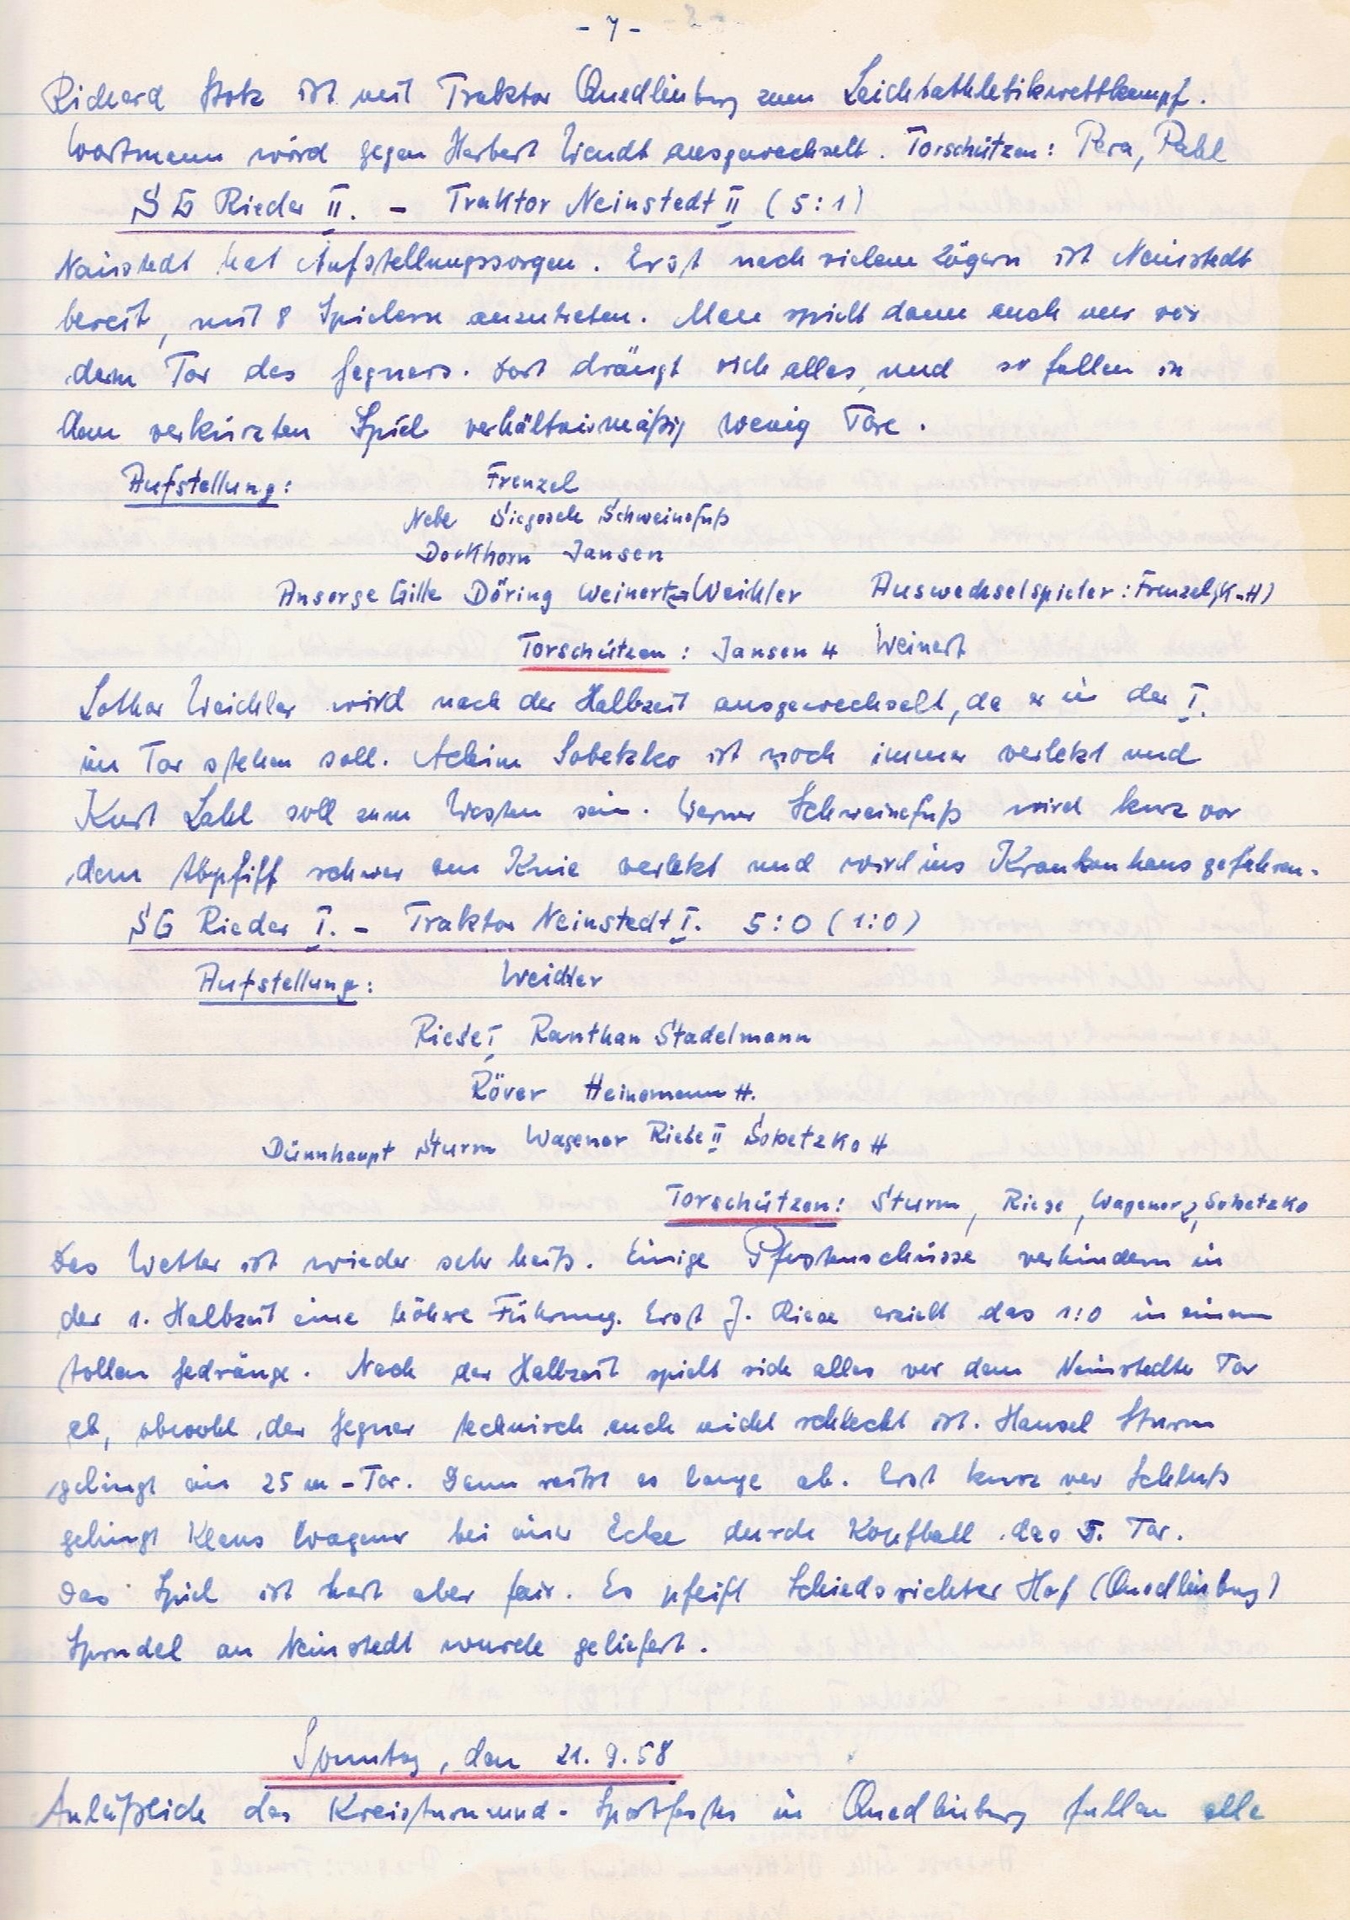 - 7 -
Richard Stotz ist mit Traktor Quedlinburg zum Leichtathletikwettkampf.
Wortmann wird gegen Herbert Wendt ausgewechselt. Torschützen: Pera, Pahl
SG Rieder II. - Traktor Neinstedt II (5:1)
Neinstedt hat Aufstellungssorgen. Erst nach vielem Zögern ist Neinstedt
bereit, mit 8 Spielern anzutreten. Man spielt dann auch nur vor
dem Tor des Gegners. Dort drängt sich alles, und so fallen in
dem verkürzten Spiel verhältnismäßig wenig Tore.
Aufstellung: Frenzel
Nebe Siegosch Schweinefuß
Dorkhorn Jansen
Ansorge Gille Döring Weinert Weichler Auswechselspieler: Frenzel (K-H)
Torschützen: Jansen 4 Weinert
Lothar Weichler wird nach der Halbzeit ausgewechselt, da er in der I.
im Tor stehen soll. Achim Sobetzko ist noch immer verletzt und
Kurt Lahl soll zum Westen sein. Werner Schweinefuß wird kurz vor
dem Abpfiff schwer am Knie verletzt und wird ins Krankenhaus gefahren.
SG Rieder I. - Traktor Neinstedt I. 5:0 (1:0)
Aufstellung: Weichler
Riese I Ranthan Stadelmann
Röver Heinemann H.
Dünnhaupt Sturm Wagener Riese II Sobetzko H
Torschützen: Sturm, Riese, Wagener 2, Sobetzko
Das Wetter ist wieder sehr heiß. Einige Pfostenschüsse verhindern in
der 1. Halbzeit eine höhere Führung. Erst J. Riese erzielt das 1:0 in einem
tollen Gedränge. Nach der Halbzeit spielt sich alles vor dem Neinstedter Tor
ab, obwohl der Gegner technisch auch nicht schlecht ist. Hansel Sturm
gelingt ein 25 m-Tor. Dann reißt es lange ab. Erst kurz vor Schluß
gelingt Klaus Wagener bei einer Ecke durch Kopfball das 5. Tor.
Das Spiel ist hart aber fair. Es pfeift Schiedsrichter Hof (Quedlinburg)
Sprudel an Neinstedt wurde geliefert.
Sonntag, den 21.9.58
Anläßlich des Kreisturn und - Sportfestes in Quedlinburg fallen alle